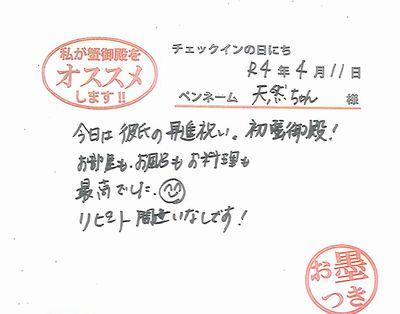 私が蟹御殿を
オススメ
します!!
チェックインの日にち
R4年4月11日
ペンネーム 天然ちゃん 様
今日は彼氏の昇進祝い。初蟹御殿!
お部屋も、お風呂もお料理も
最高でした。
リピート間違いなしです!
お墨
つき